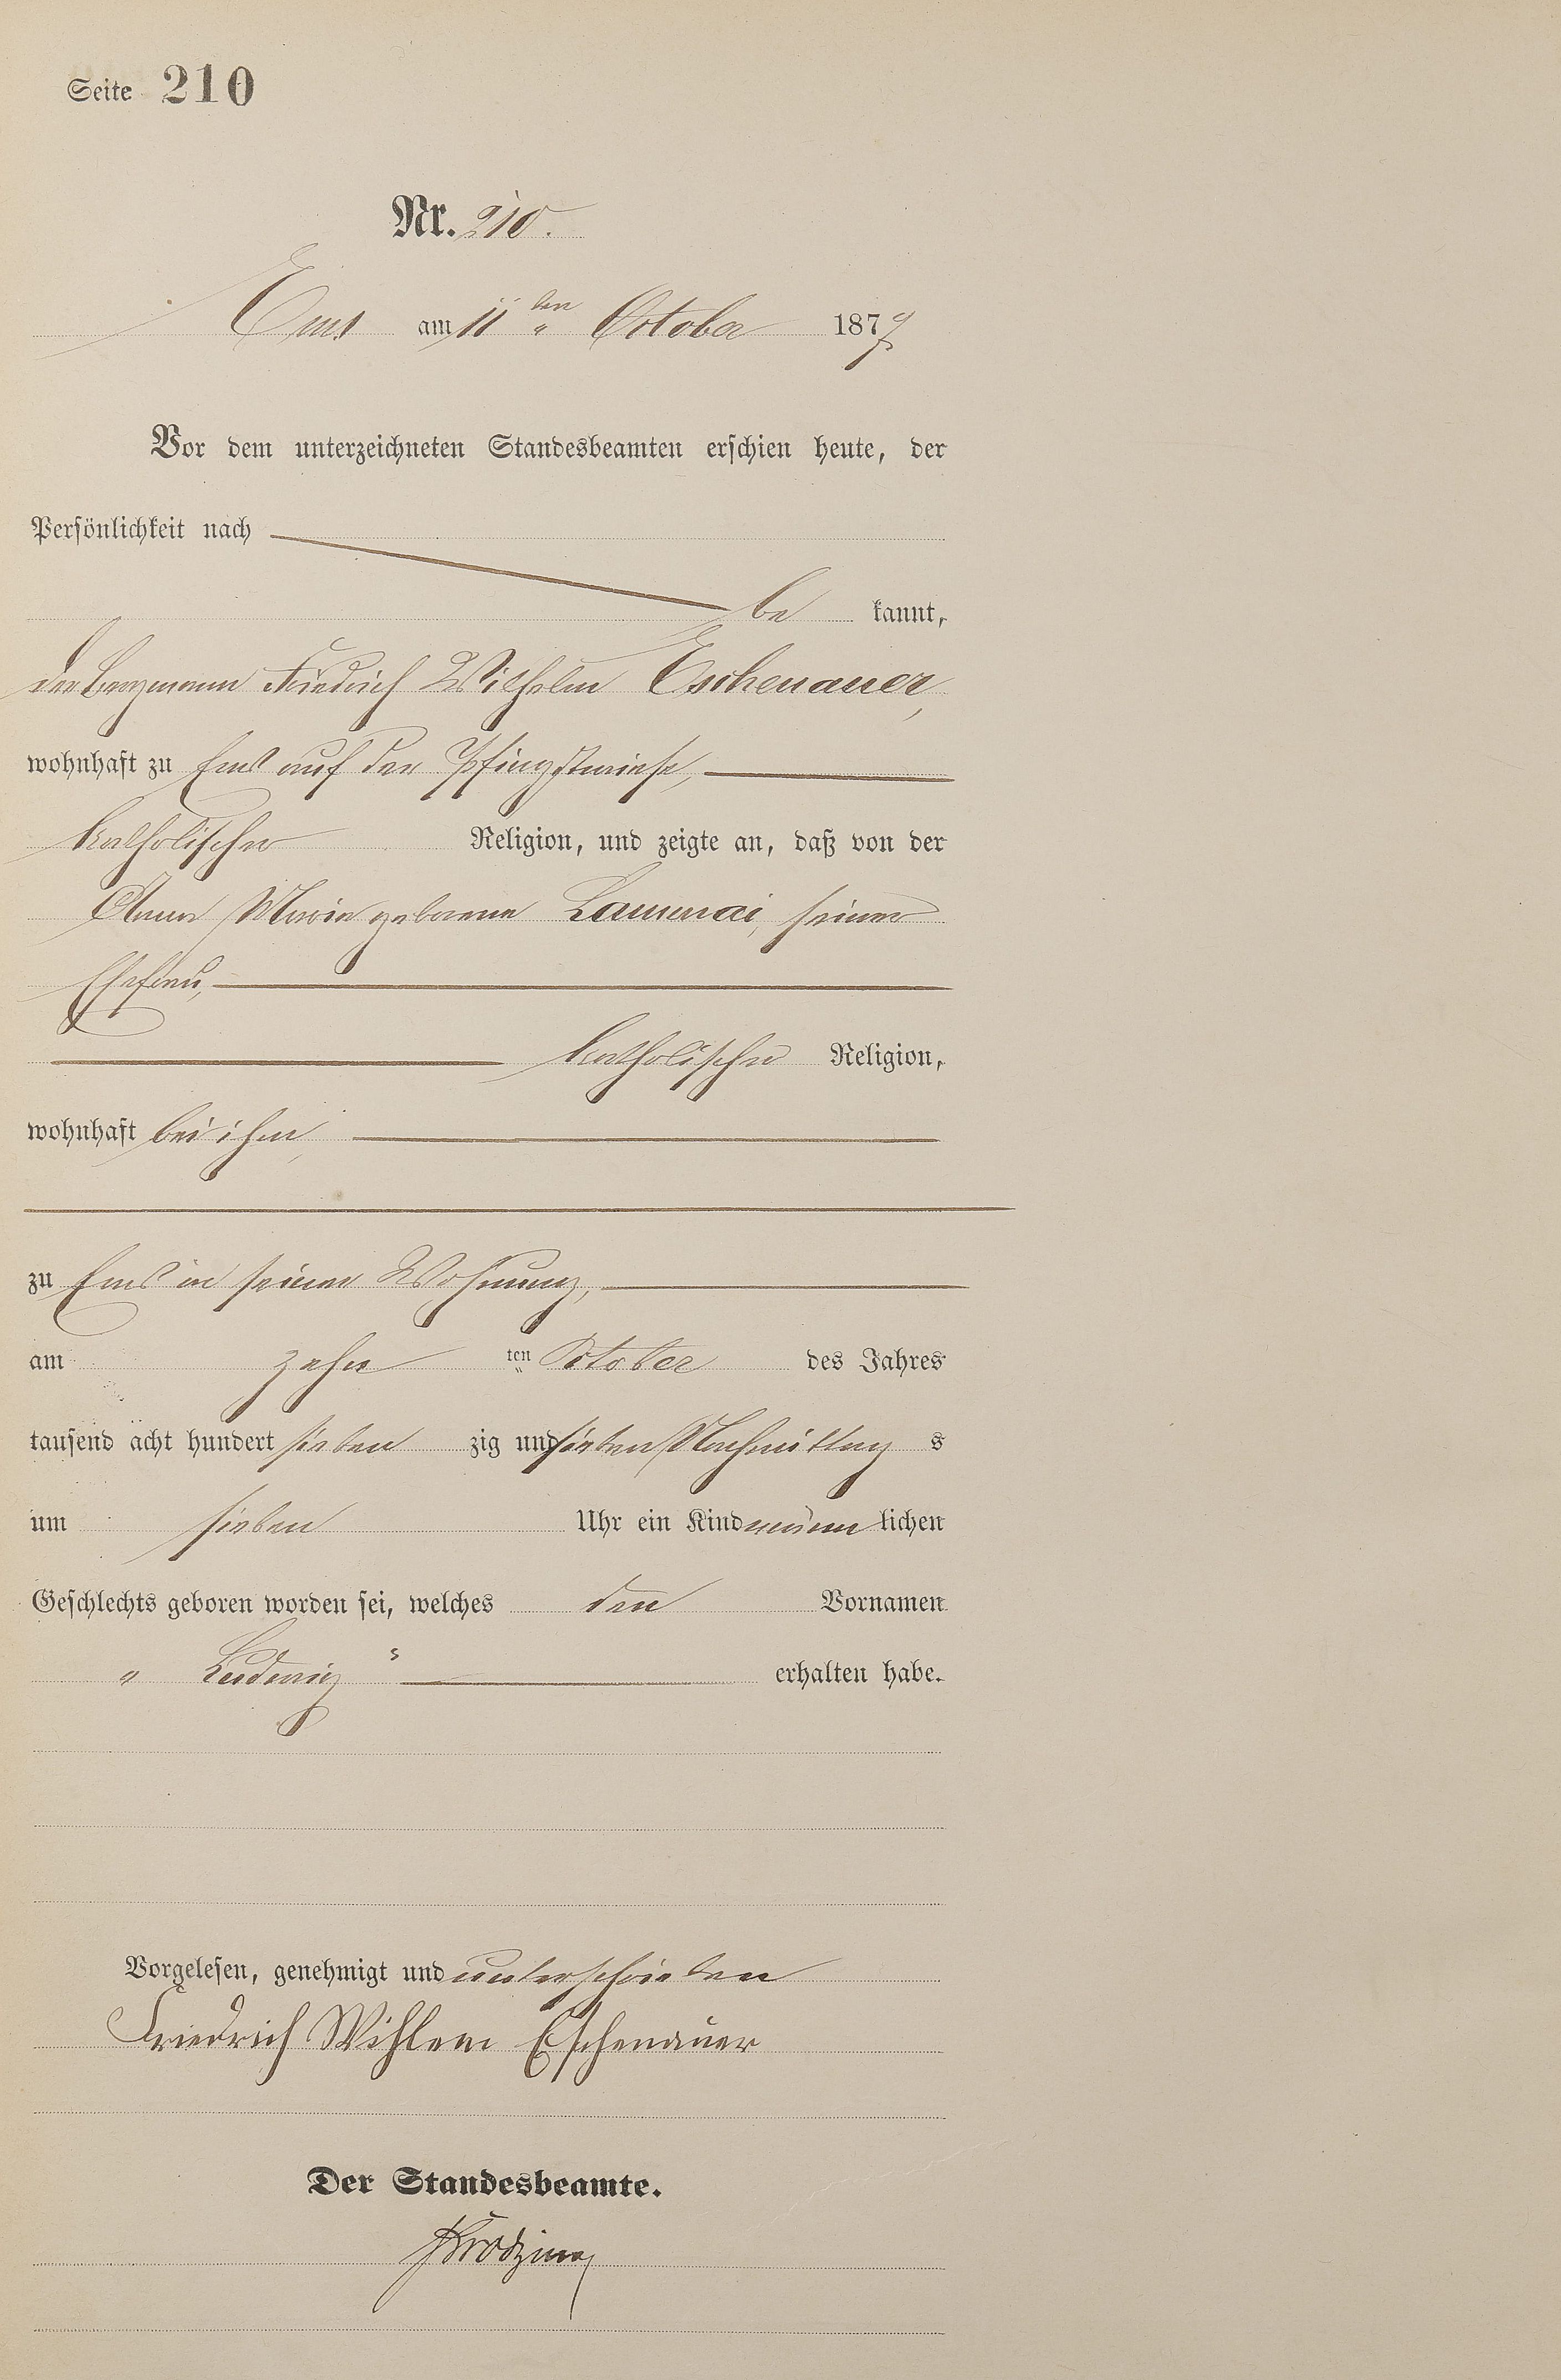 Seite 210
Nr. 210.
Ems am 11ten October 1877
Vor dem unterzeichneten Standesbeamten erschien heute, der
Persönlichkeit nach
be kannt,
der Bergmann Friedrich Wilhelm Eschenauer,
wohnhaft zu Ems auf der Pfingstwiese,
katholischer Religion, und zeigte an, daß von der
Anna Maria geborene seiner
Ehefrau,
katholischer Religion,
wohnhaft bei ihm,
zu Ems in seiner Wohnung,
am zehn ten October des Jahres
tausend acht hundert sieben zig und sieben Nachmittag s
um sieben Uhr ein Kind männ lichen
Geschlechts geboren worden sei, welches den Vornamen
"Ludwig" erhalten habe.
Vorgelesen, genehmigt und unterschrieben
Friedrich Wihlem Eschenauer
Der Standesbeamte.